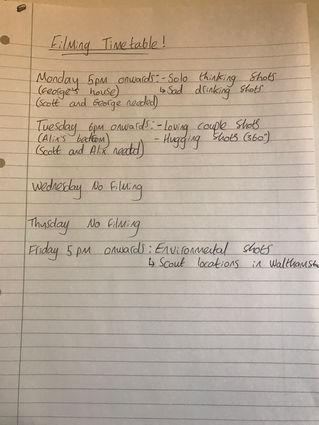 Filming Timetable!
Monday 5pm onwards:- Solo thinking shots
(George's house) ↳ Sad drinking shots
(Scott and George needed)
Tuesday 6pm onwards:- Loving couple shots
(Alix's bedroom) - Hugging shots (360°)
(Scott and Alix needed)
Wednesday No Filming
Thursday No Filming
Friday 5pm onwards: Environmental shots
↳ Scout locations in